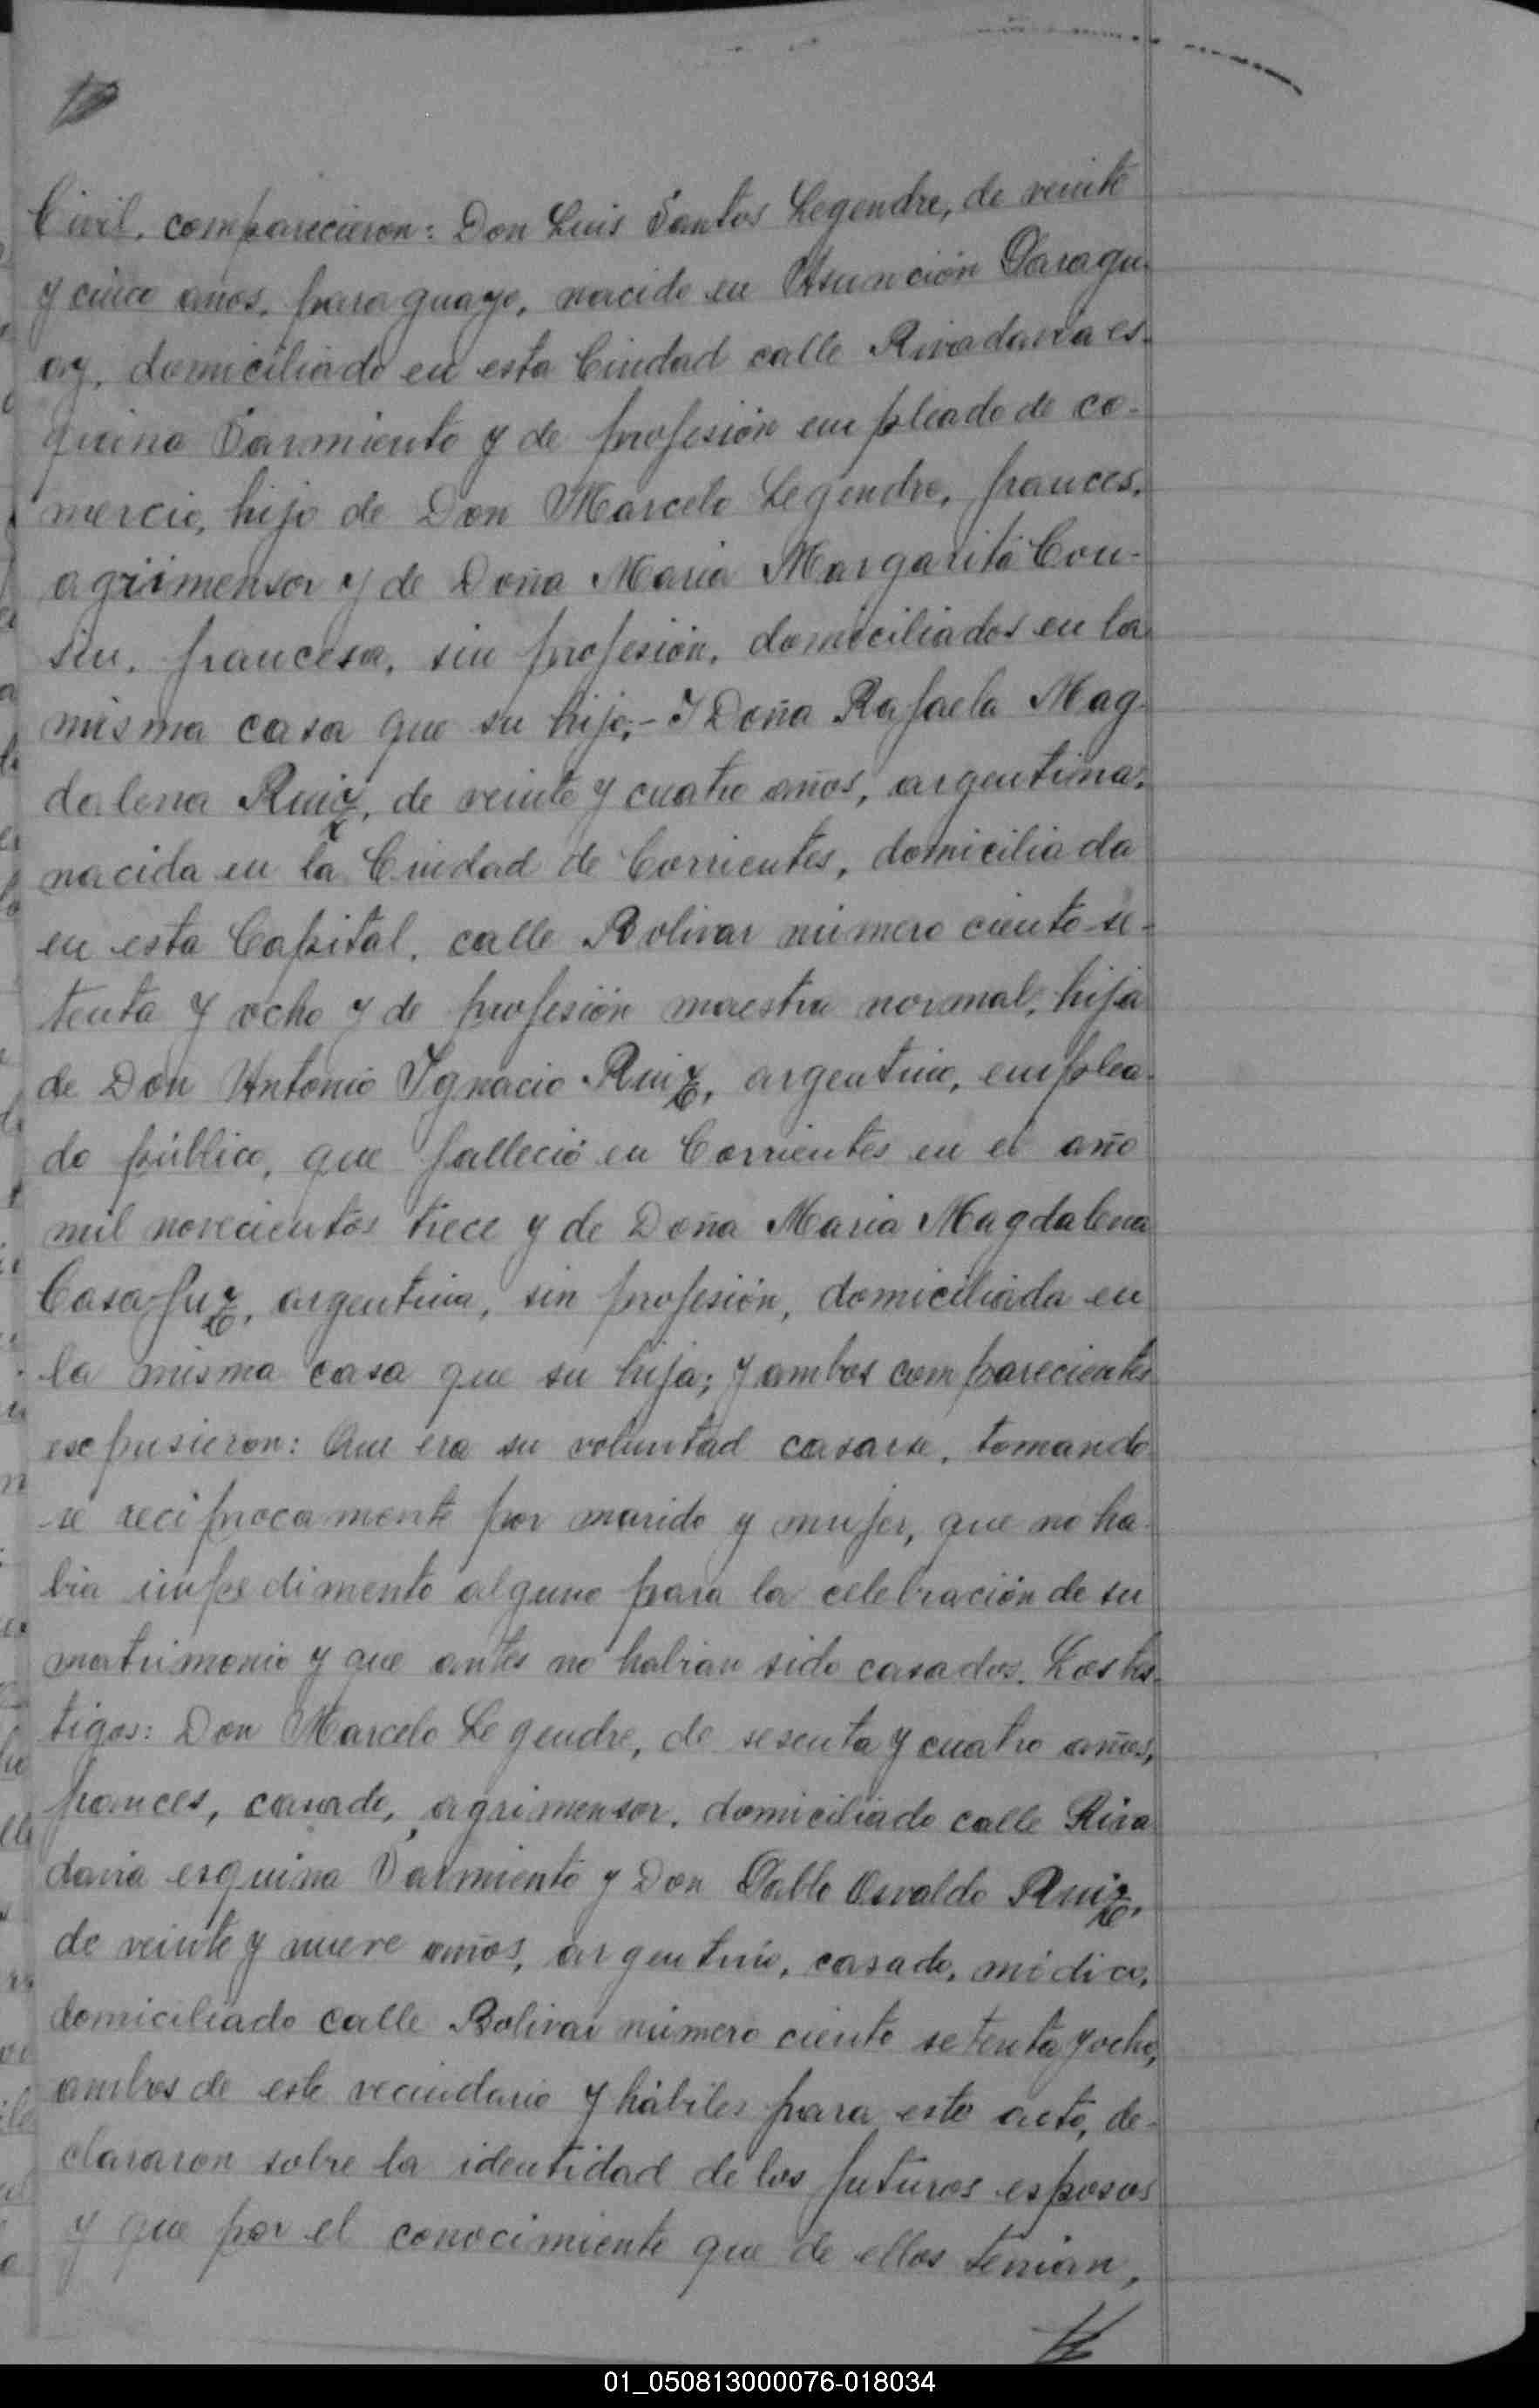 Civil, comparecieron: Don Luis Santos Legendre, de veinte
y cinco años, paraguayo, nacido en Asunción Paragu-
ay, domiciliado en esta Ciudad calle Rivadavia es-
quina Sarmiento y de profesión empleado de co-
mercio, hijo de Don Marcelo Legendre, frances,
agrimensor y de Doña Maria Margarita Cou-
sin, francesa, sin profesión, domiciliados en la
misma casa que su hijo;- Y Doña Rafaela Mag-
dalena Ruiz, de veinte y cuatro años, argentina,
nacida en la Ciudad de Corrientes, domiciliada
en esta Capital, calle Bolivar número ciento se-
tenta y ocho y de profesión maestra normal, hija
de Don Antonio Ignacio Ruiz, argentino, emplea-
do público, que falleció en Corrientes en el año
mil novecientos trece y de Doña Maria Magdalena
Casafuz, argentina, sin profesión, domiciliada en
la misma casa que su hija; y ambos comparecientes
expusieron: Que era su voluntad casarse, tomando-
se reciprocamente por marido y mujer, que no ha-
bia impedimento alguno para la celebración de su
matrimonio y que antes no habian sido casados. Los tes-
tigos: Don Marcelo Legendre, de sesenta y cuatro años,
frances, casado, agrimensor, domiciliado calle Riva
davia esquina Sarmiento y Don Pablo Osvaldo Ruiz,
de veinte y nueve años, argentino, casado, médico,
domiciliado calle Bolivar número ciento setenta y ocho,
ambos de este vecindario y hábiles para este acto, de-
clararon sobre la identidad de los futuros esposos
y que por el conocimiento que de ellos tenian,
01_050813000076-018034